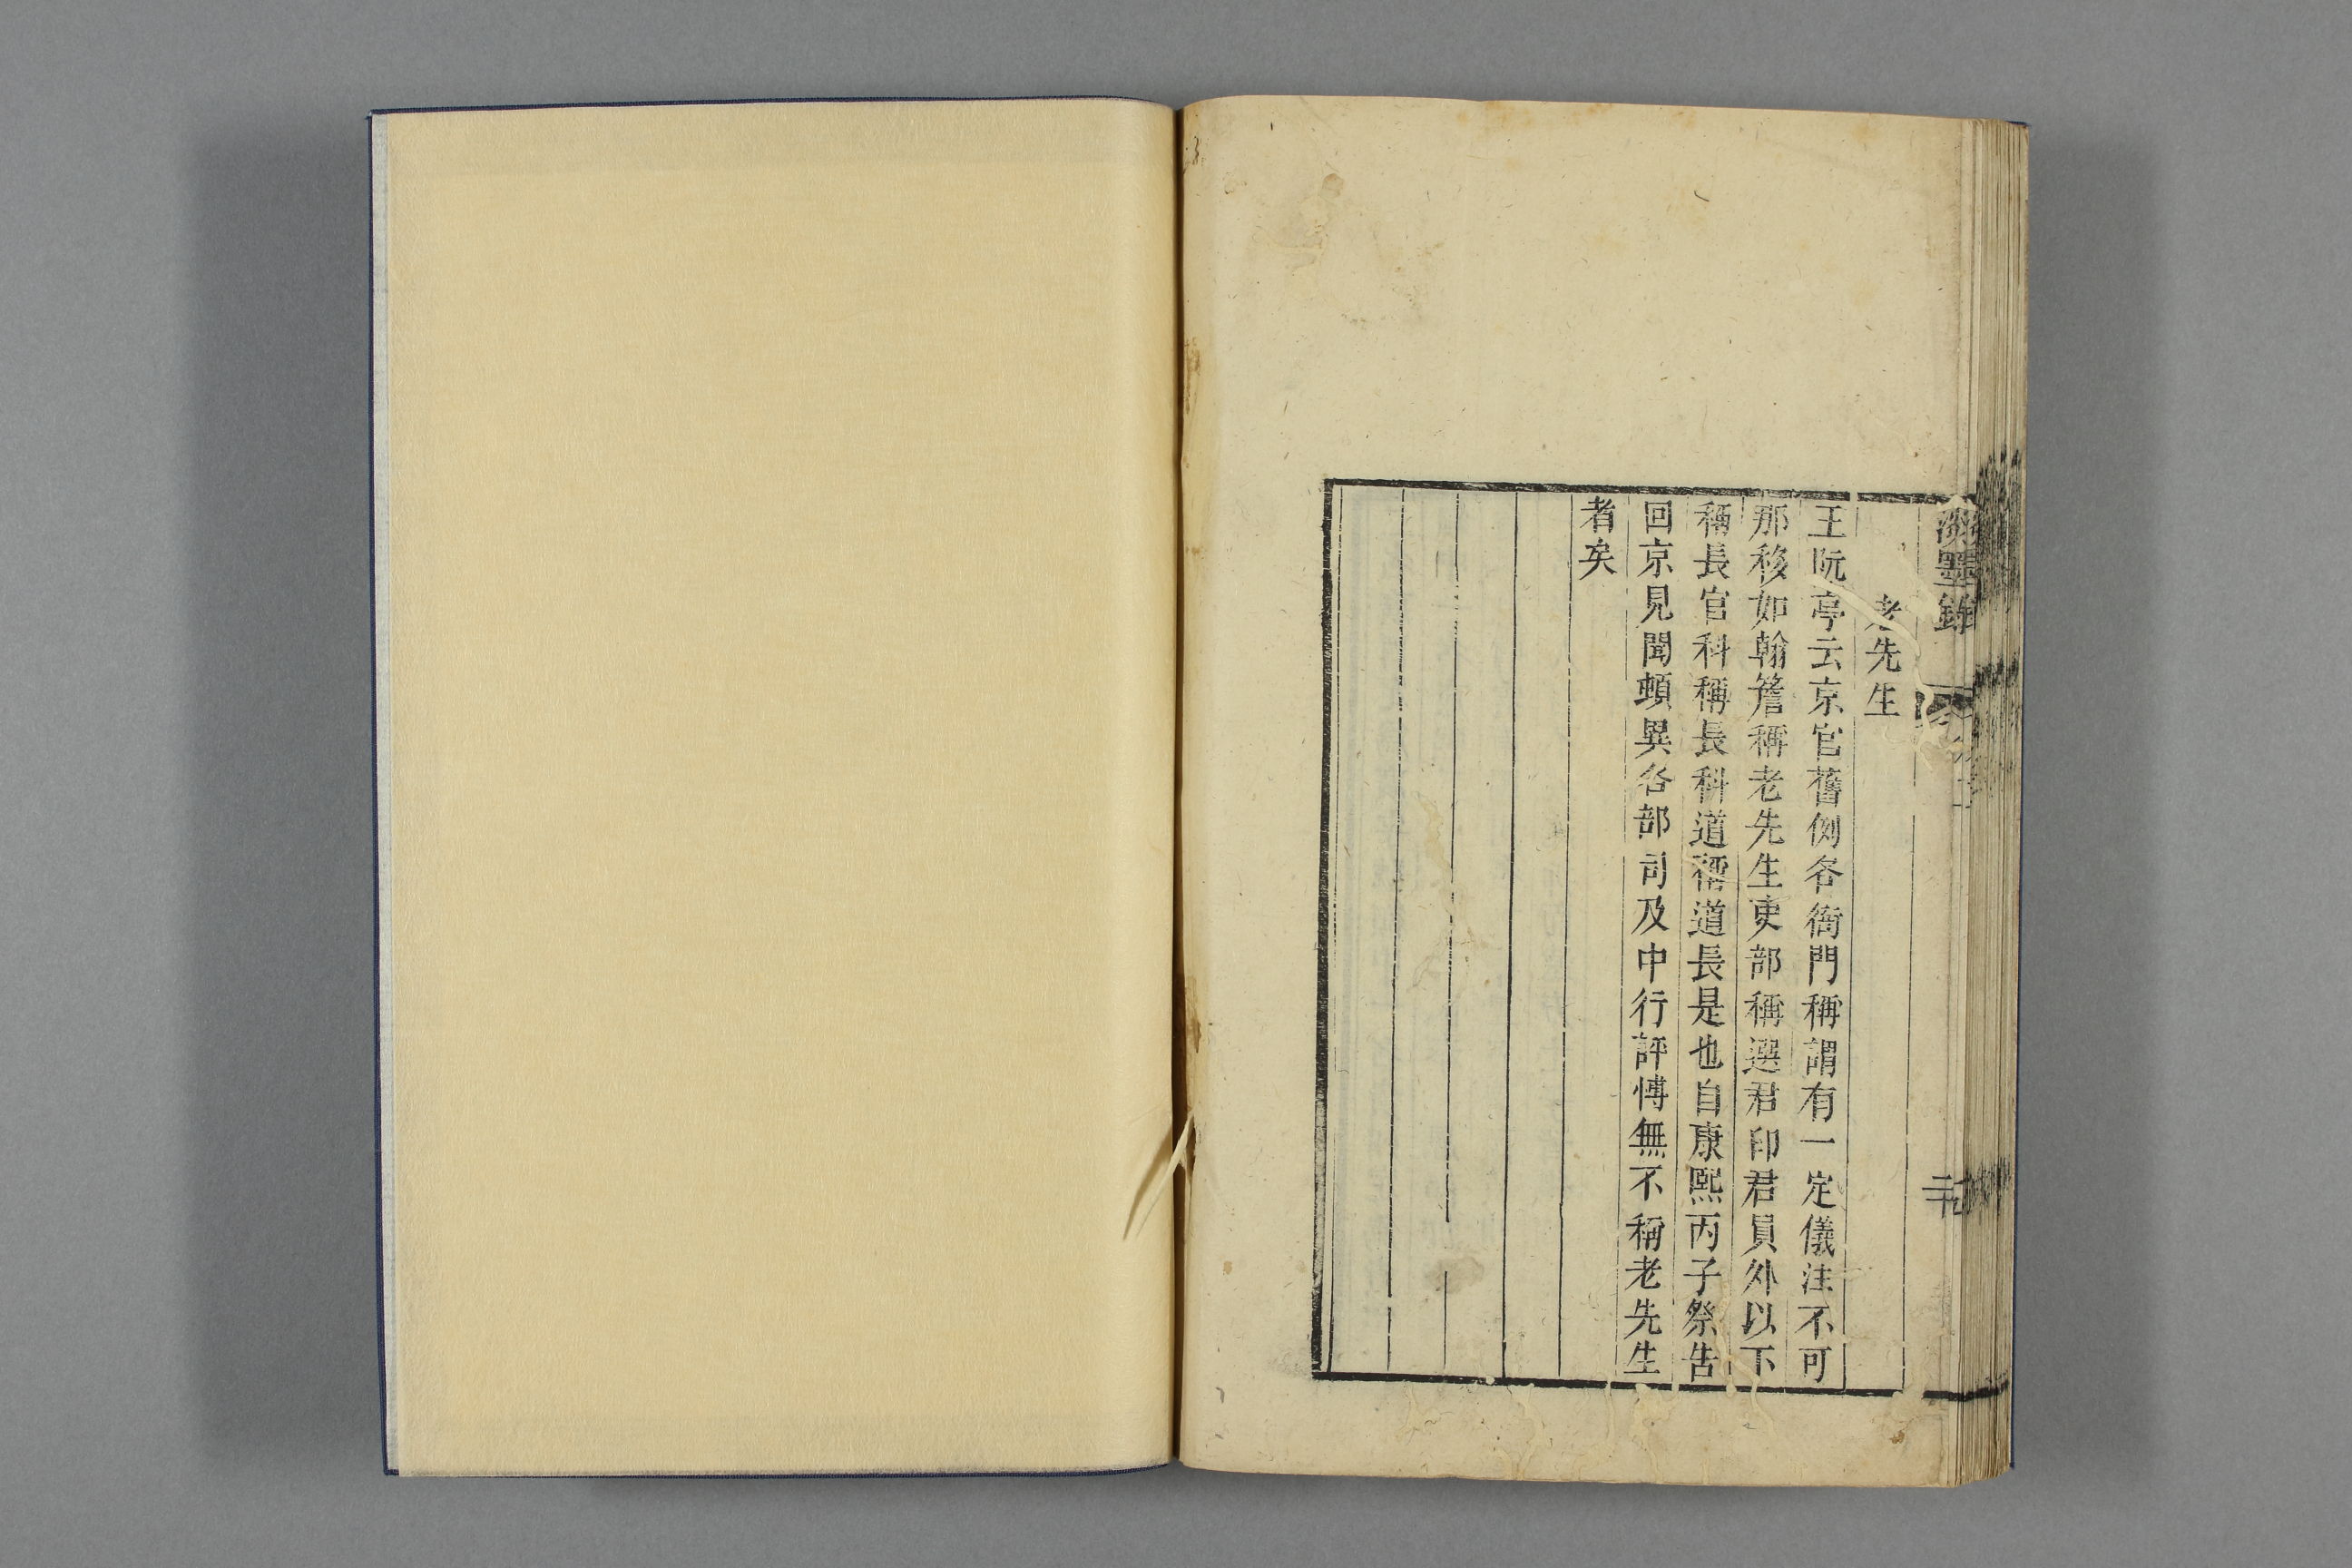 淡墨錄
老先生
王阮亭云京官舊例各衙門稱謂有一定儀注不可
那移如翰詹稱老先生吏部稱選君印君員外以下
稱長官科稱長科道稱道長是也自康熙丙子祭告
回京見聞頓異各部司及中行評博無不稱老先生
者矣